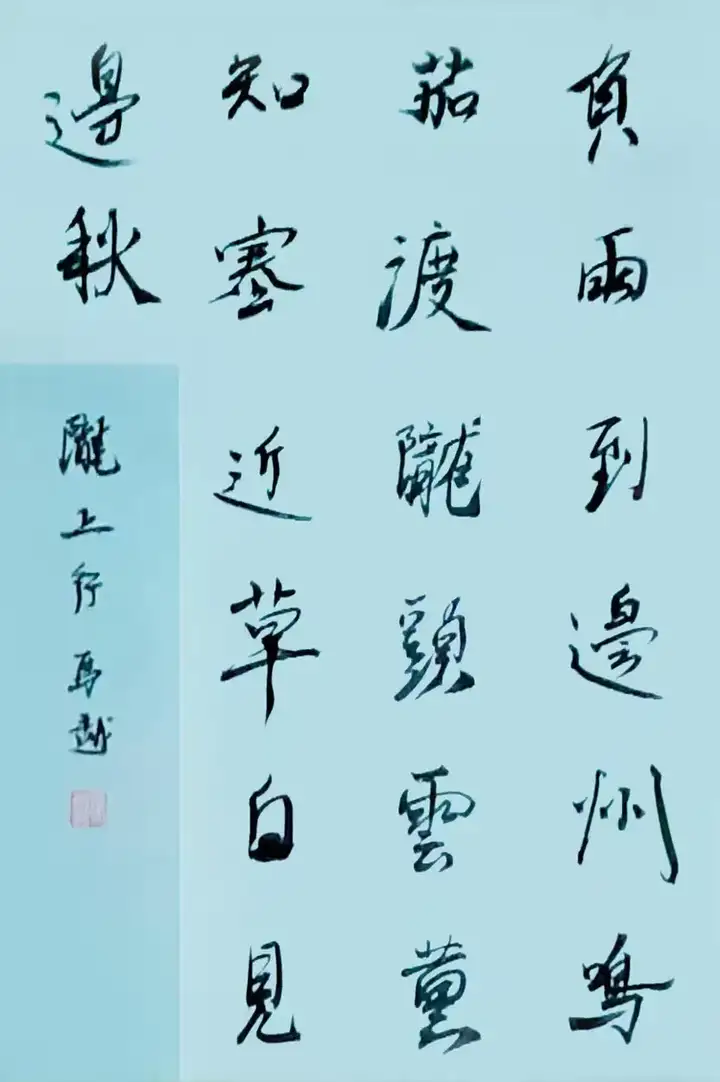 負雨到邊州鳴
茄渡隴頭雲黃
知塞近草白見
邊秋
隴上行 馬越